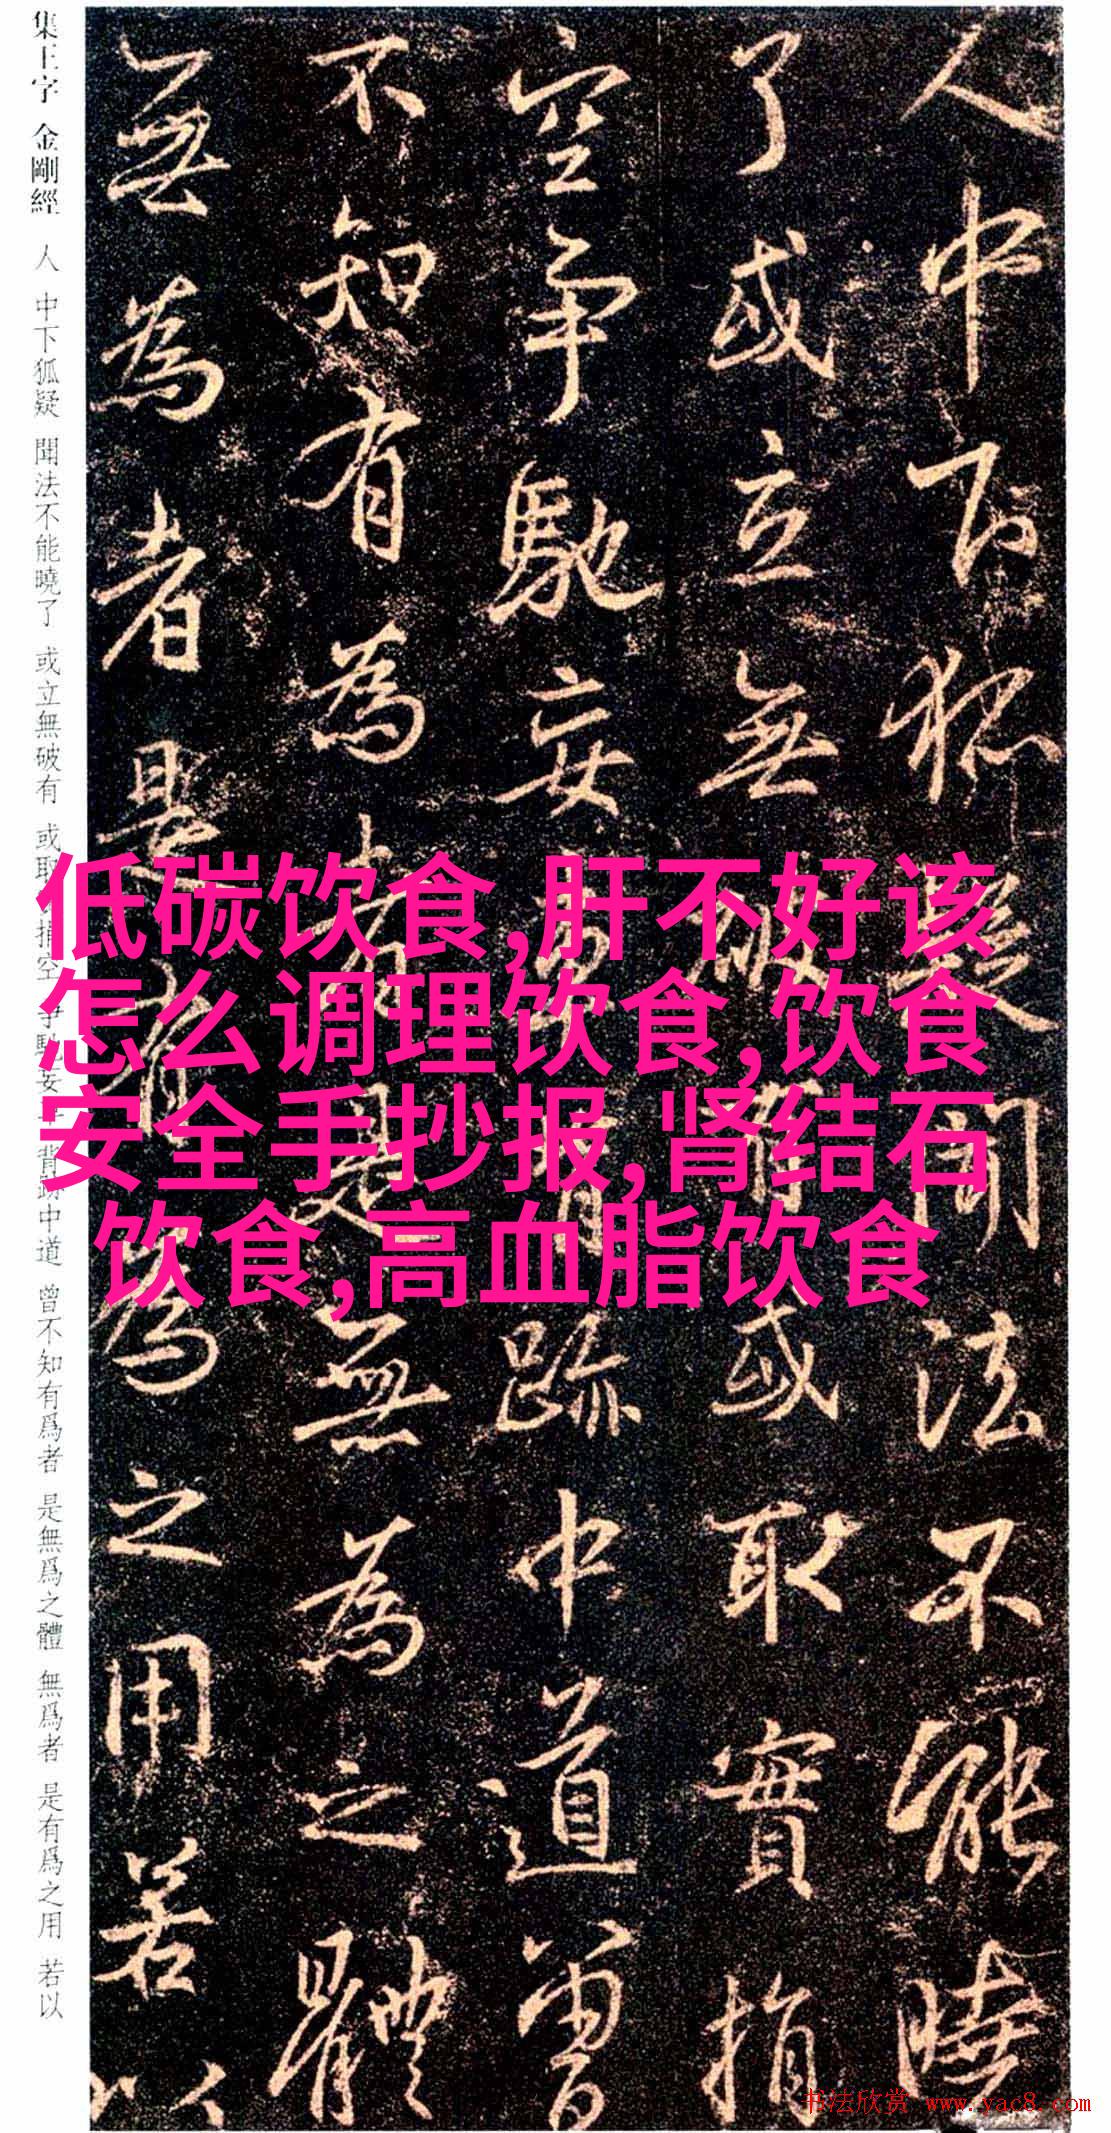 人中下狐疑聞法不能曉
了或立無破有或取實捐
空爭馳妄事背跡中道曾
不知有為者是無為之體
無為者是有為之用若以
集王字 金剛經 人 中下狐疑 聞法不能曉了 或立無破有 或取捐空 爭馳妄 背跡中道 曾不知有爲者 是無爲之體 無爲者 是有爲之用 若以
低碳饮食,肝不好该
怎么调理饮食,饮食
安全手抄报,肾结石
饮食,高血脂饮食
书法欣赏 www.yac8.com